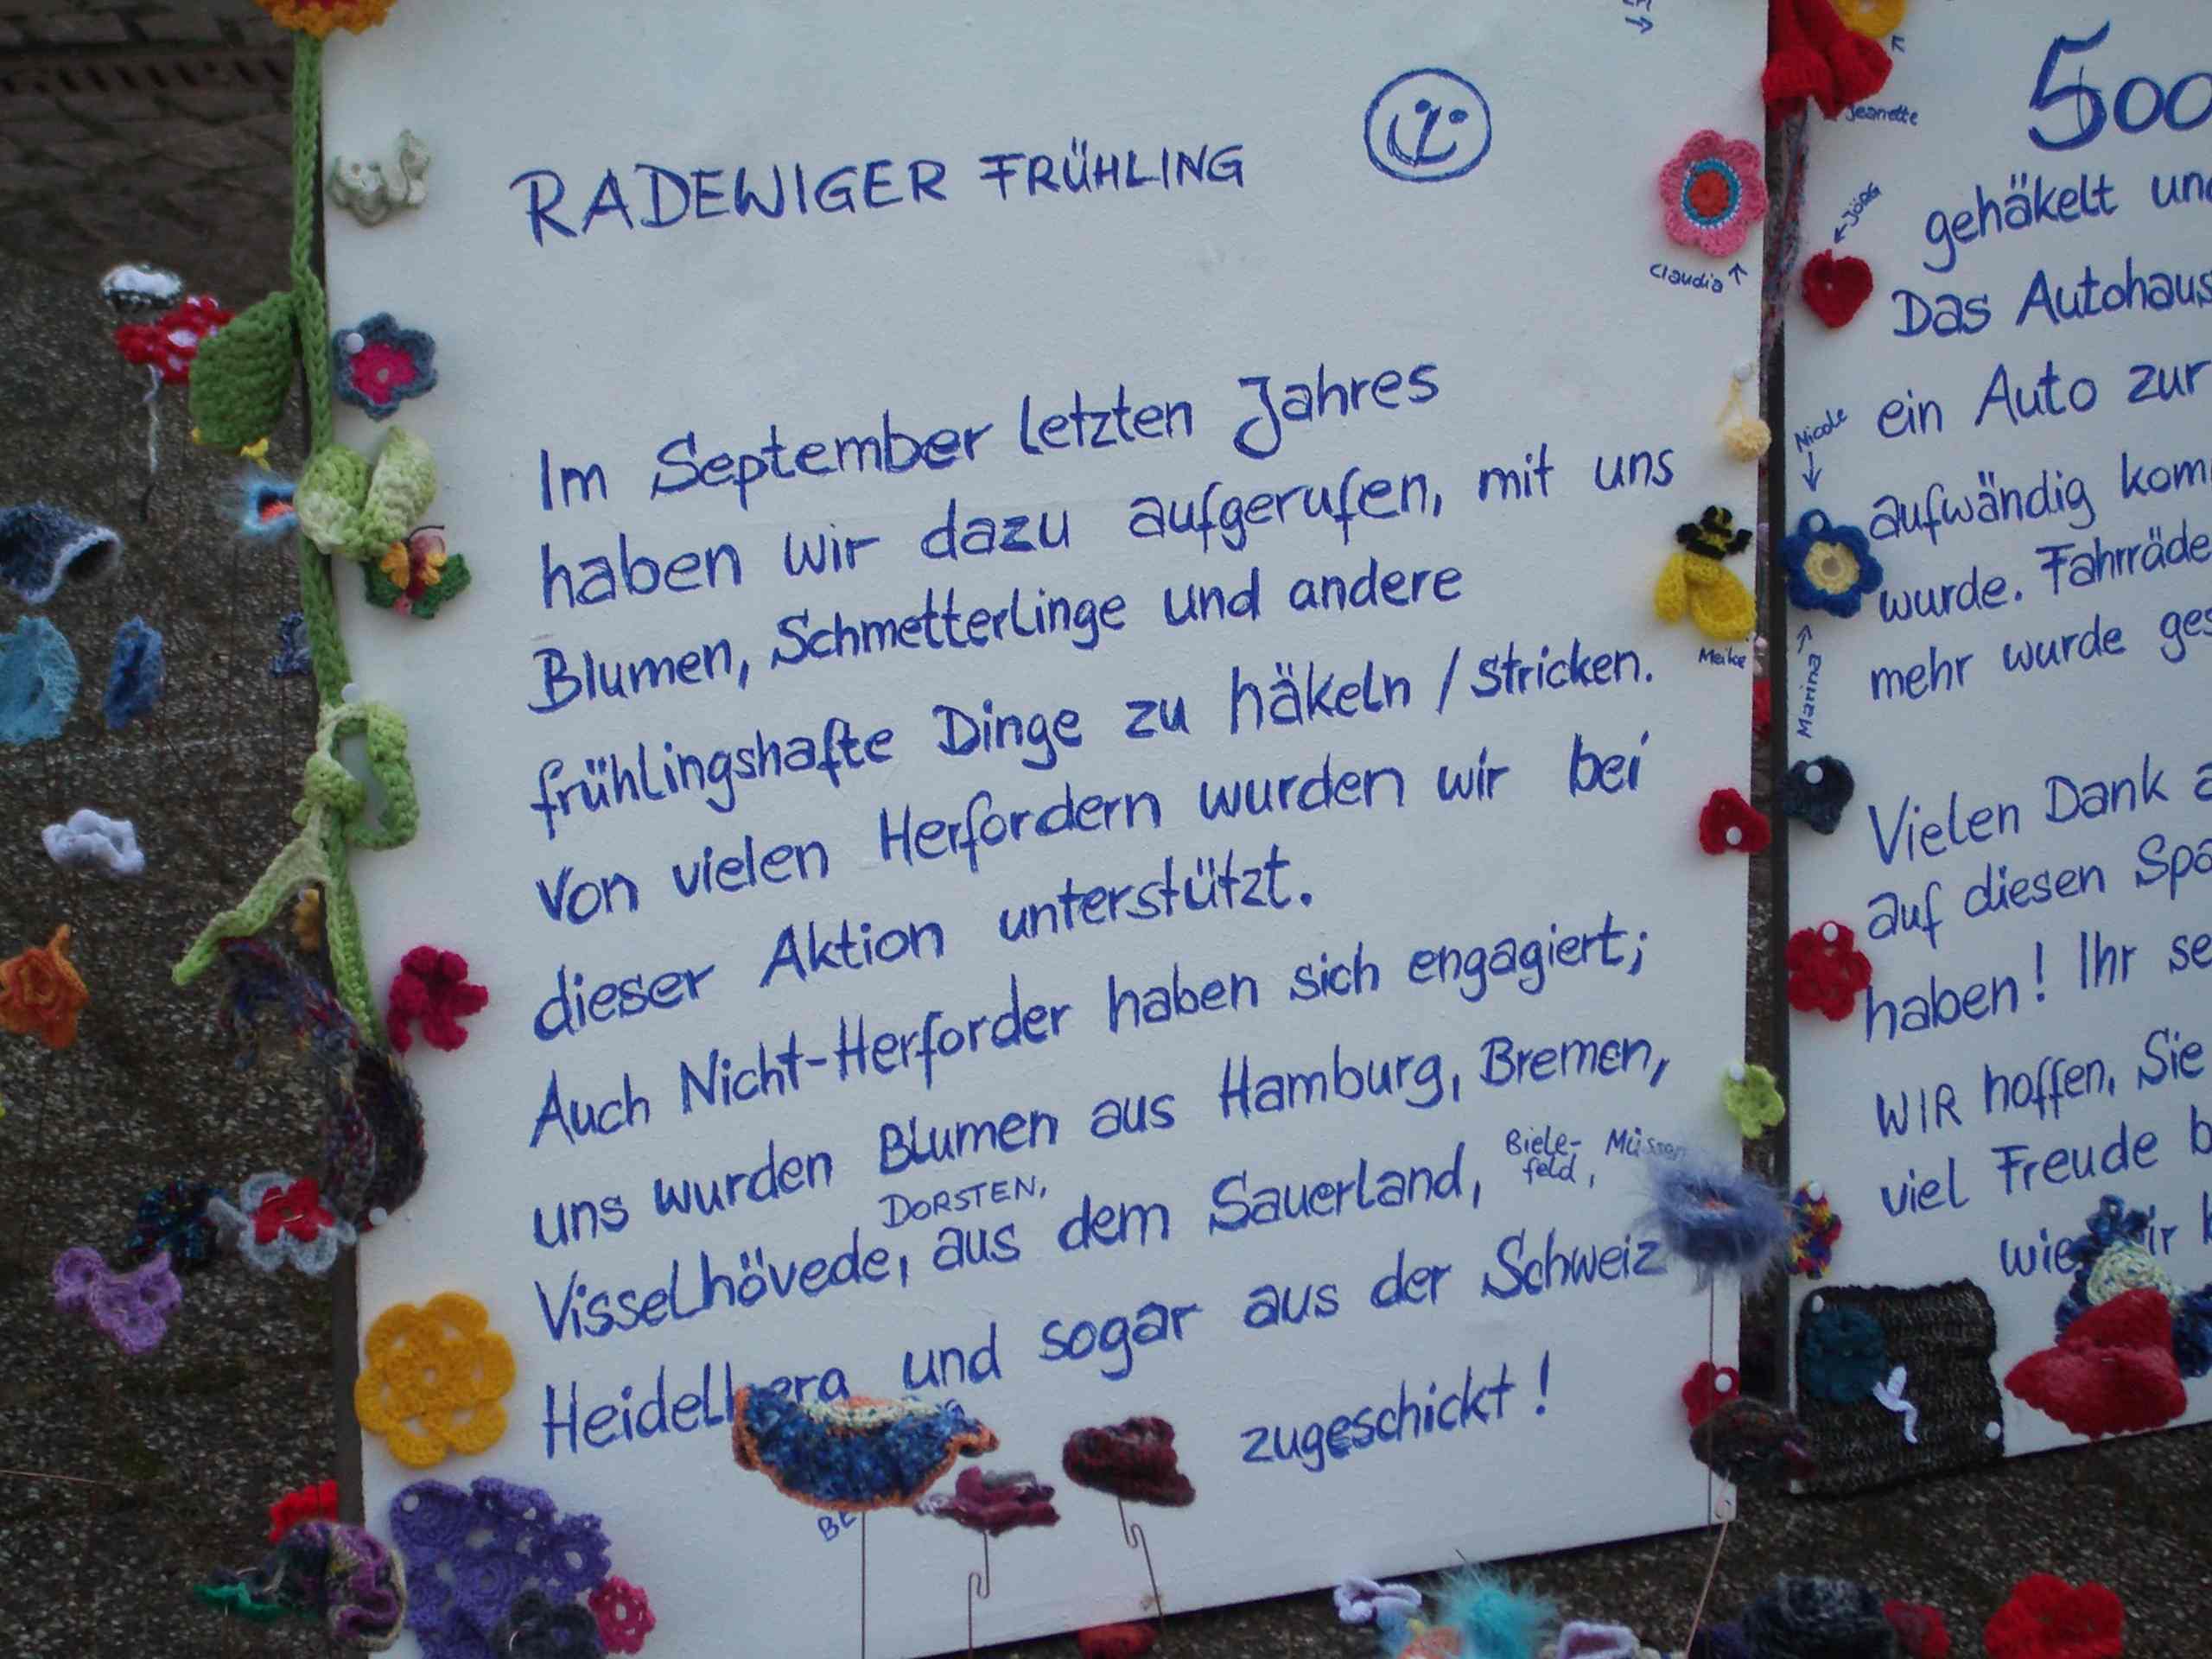 RADEWIGER FRÜHLING
Im September letzten Jahres
haben wir dazu aufgerufen, mit uns
Blumen, Schmetterlinge und andere
frühlingshafte Dinge zu häkeln / stricken.
Von vielen Herfordern wurden wir bei
dieser Aktion unterstützt.
Auch Nicht-Herforder haben sich engagiert;
uns wurden Blumen aus Hamburg, Bremen,
DORSTEN,
Visselhövede, aus dem Sauerland, Biele-
feld,
Heidelberg und sogar aus der Schweiz
zugeschickt!
Claudia
Meike
Jeanette
JÖRG
Nicole
Marina
500
gehäkelt
Das Autohaus
ein Auto zur
aufwändig
wurde.
mehr wurde
Vielen Dank
auf diesen
haben! Ihr
WIR hoffen, Sie
viel Freude